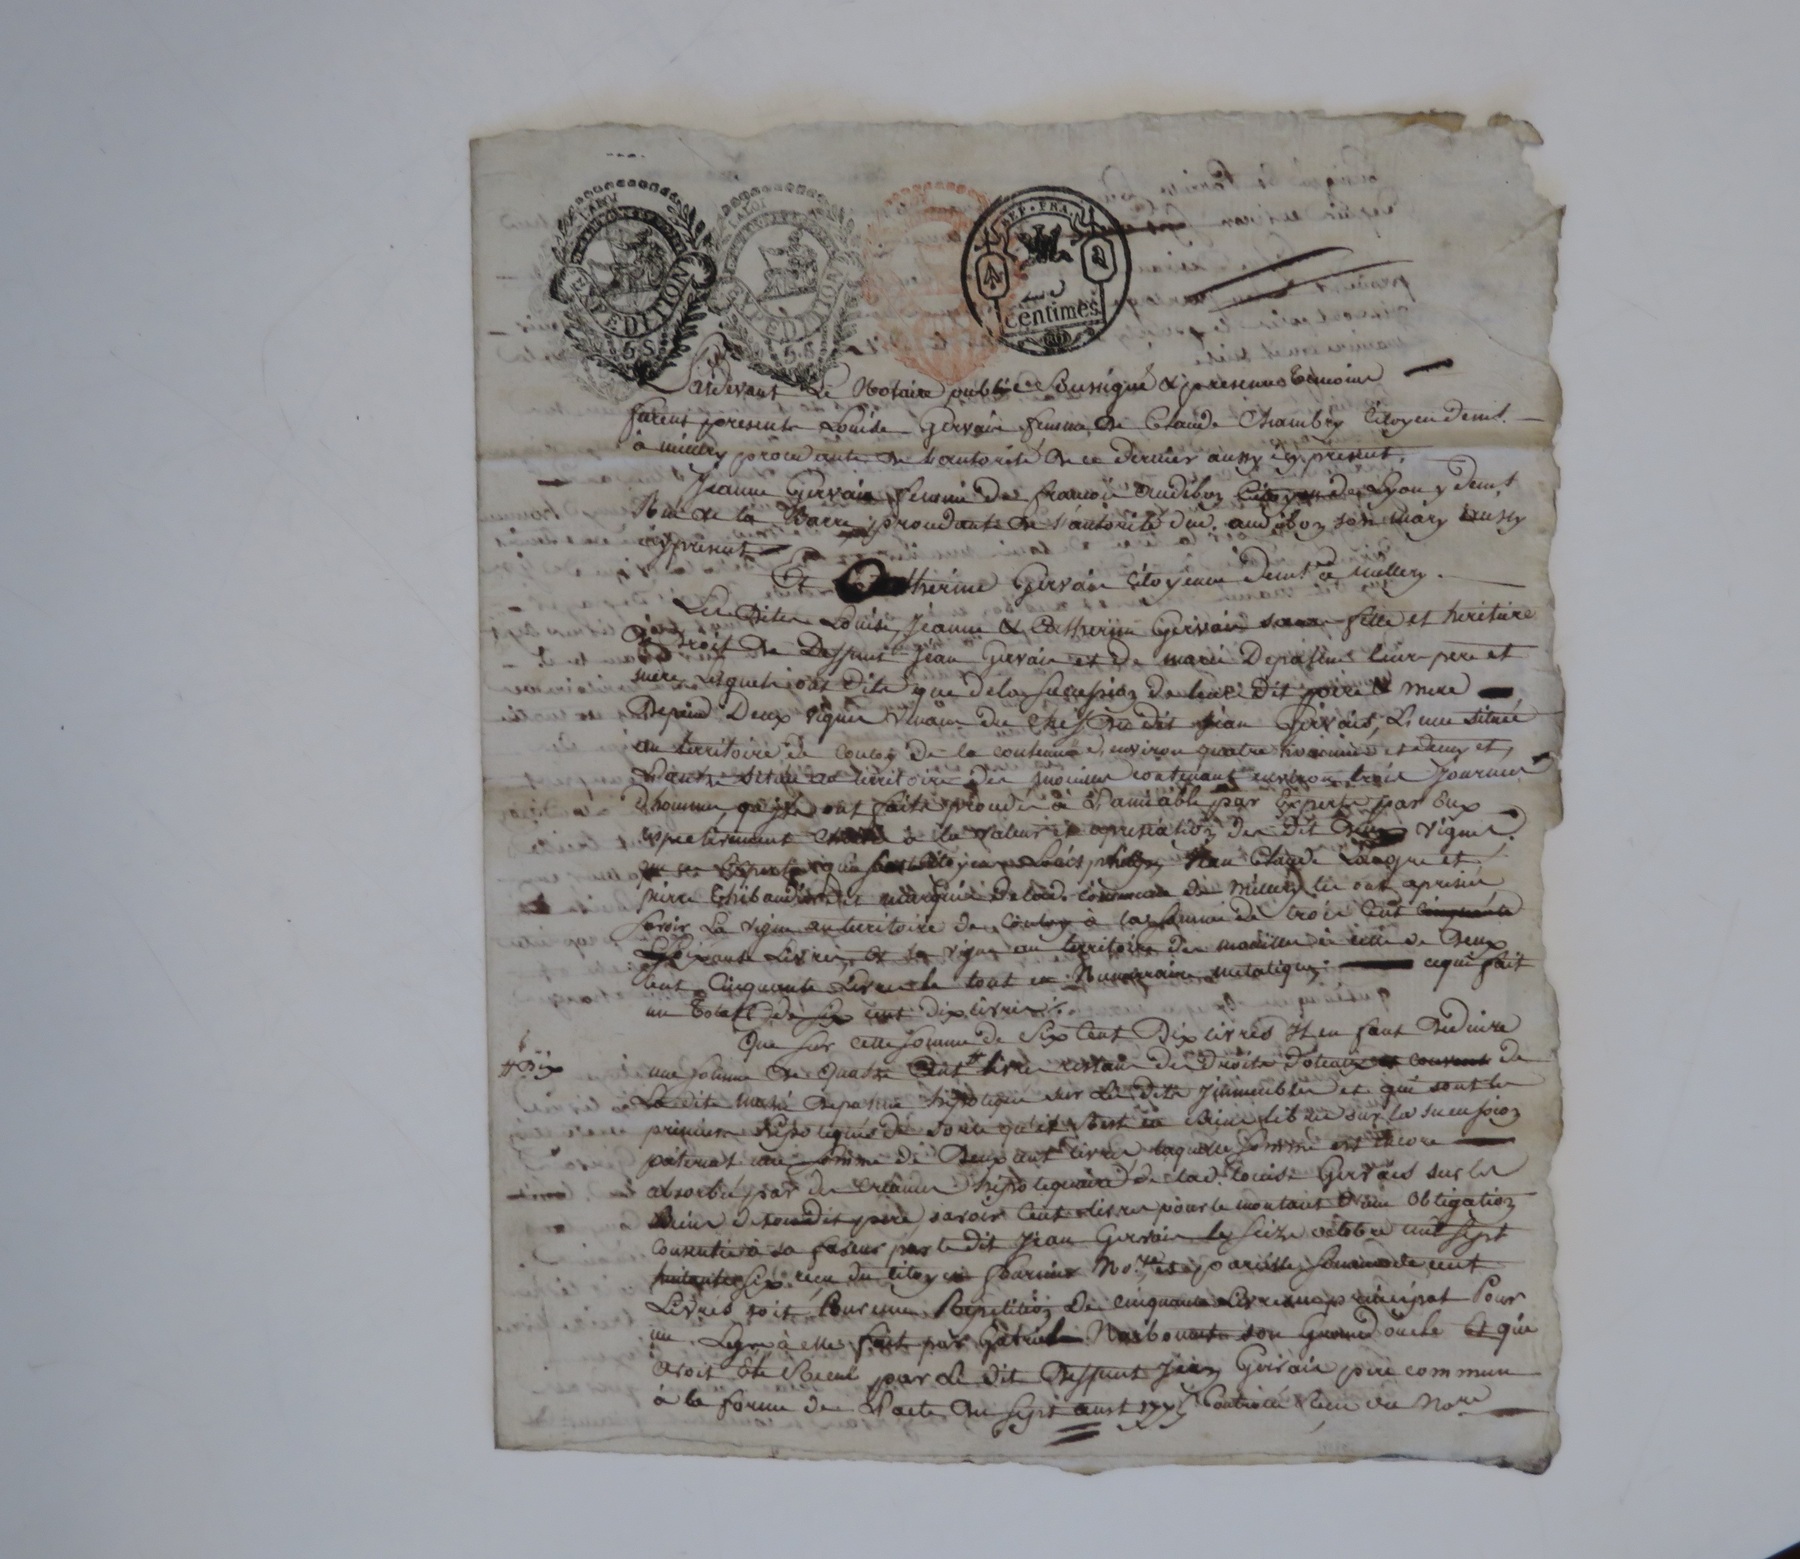 LA LOI
EXPEDITION
5 S
LA LOI
EXPEDITION
5 S
REP. FRA.
centimes
Pardevant Le Notaire public soussigné & presence temoins
furent presents Louise Gervais femme de Claude Chambry Citoyen demt.
à millery procedante de l'autorité de ce dernier aussy icy present.
Jeanne Gervais femme de francois Audibon de Lyon y demt
Rue de la Barre procedante de l'autorité dud. audibon son mary aussy
icy present
Et Catherine Gervais Citoyenne demt à millery.
Les Dites Louise, Jeanne & Catherine Gervais fille et heritiere
de Droit de Deffunt Jean Gervais et de marie leur pere et
mere, Lesquels ont dits que de la succession de leur dit pere & mere
Depend Deux vignes venant du Chef du dit Jean Gervais, L'une située
au territoire de de la contenance d'environ quatre hommées et demy et
L'autre située au territoire des contenant environ trois Journées
d'homme, ont faite proceder à L'amiable par Experts par Eux
respectivement à la valeur et apretiation des dit Deux vignes.
Jean Claude et
pierre Thibaudier de lad. commune de Millery les ont apretiés
savoir La vigne au territoire de à la somme de trois Cent
soixante Livres, et la vigne au territoire des à celle de Deux
Cent Cinquante Livres le tout en Numeraire metalique ce qui fait
un Totall de six cent dix livres.
Que sur cette somme de Six Cent Dix livres Il en faut Deduire
# Dix
une somme de quatre Cent # livres restant des Droits Doteaux de
La dite marie hipotequé sur Les Dits Immeubles et qui sont les
premiers hipotequés de sorte qu'il Rest en libres sur la succession
paternel une somme de Deux cent livres laquelle somme est Encore
absorbée par des Creances hipotequaires de lad. Louise Gervais sur les
Biens de son dit pere, savoir Cent livres pour le montant d'une Obligation
Consentie à sa faveur par le dit Jean Gervais le Seize octobre mil sept
six recu du citoyen Nore. et pareille somme de cent
Livres soit pour une Repetition de cinquante Livres en principal Pour
un Legs à elle fait par son Grand oncle et qui
avoit Eté Recul par Le Dit Deffunt Jean Gervais pere commun
à la forme de L'acte du Sept Controlé Recu du Nore